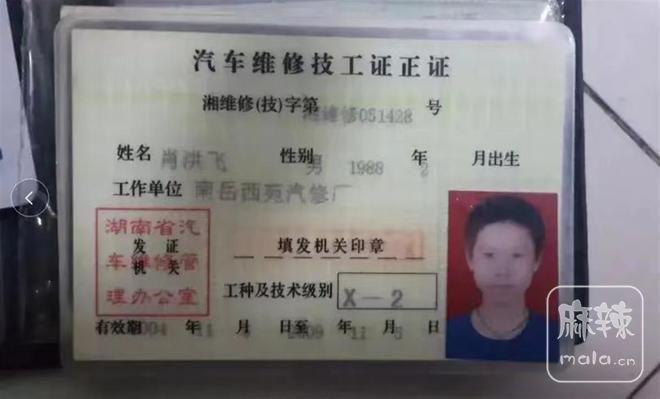 汽车维修技工证正证
湘维修(技)字第 湘维修051428 号
姓名 肖洪飞 性别 男 1988 年 2 月出生
工作单位 南岳西苑汽修厂
湖南省汽车维修管理办公室
发证机关
填发机关印章
工种及技术级别 X-2
有效期 2004 年 11 月 日至 2009 年 11 月 5 日
麻辣
mala.cn